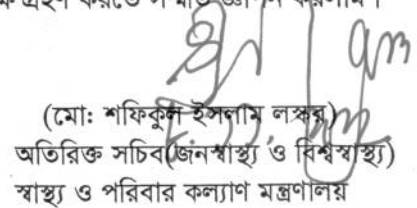 করতে
(মো: শফিকুল ইসলাম লস্কর)
অতিরিক্ত সচিব(জনস্বাস্থ্য ও বিশ্বস্বাস্থ্য)
স্বাস্থ্য ও পরিবার কল্যাণ মন্ত্রণালয়